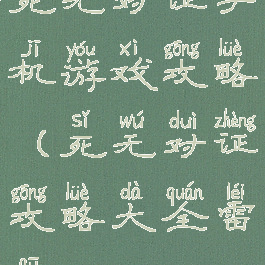 死无对证手
jī yóu xì gōng lüè
机游戏攻略
sǐ wú duì zhèng
(死无对证
gōng lüè dà quán léi
攻略大全雷